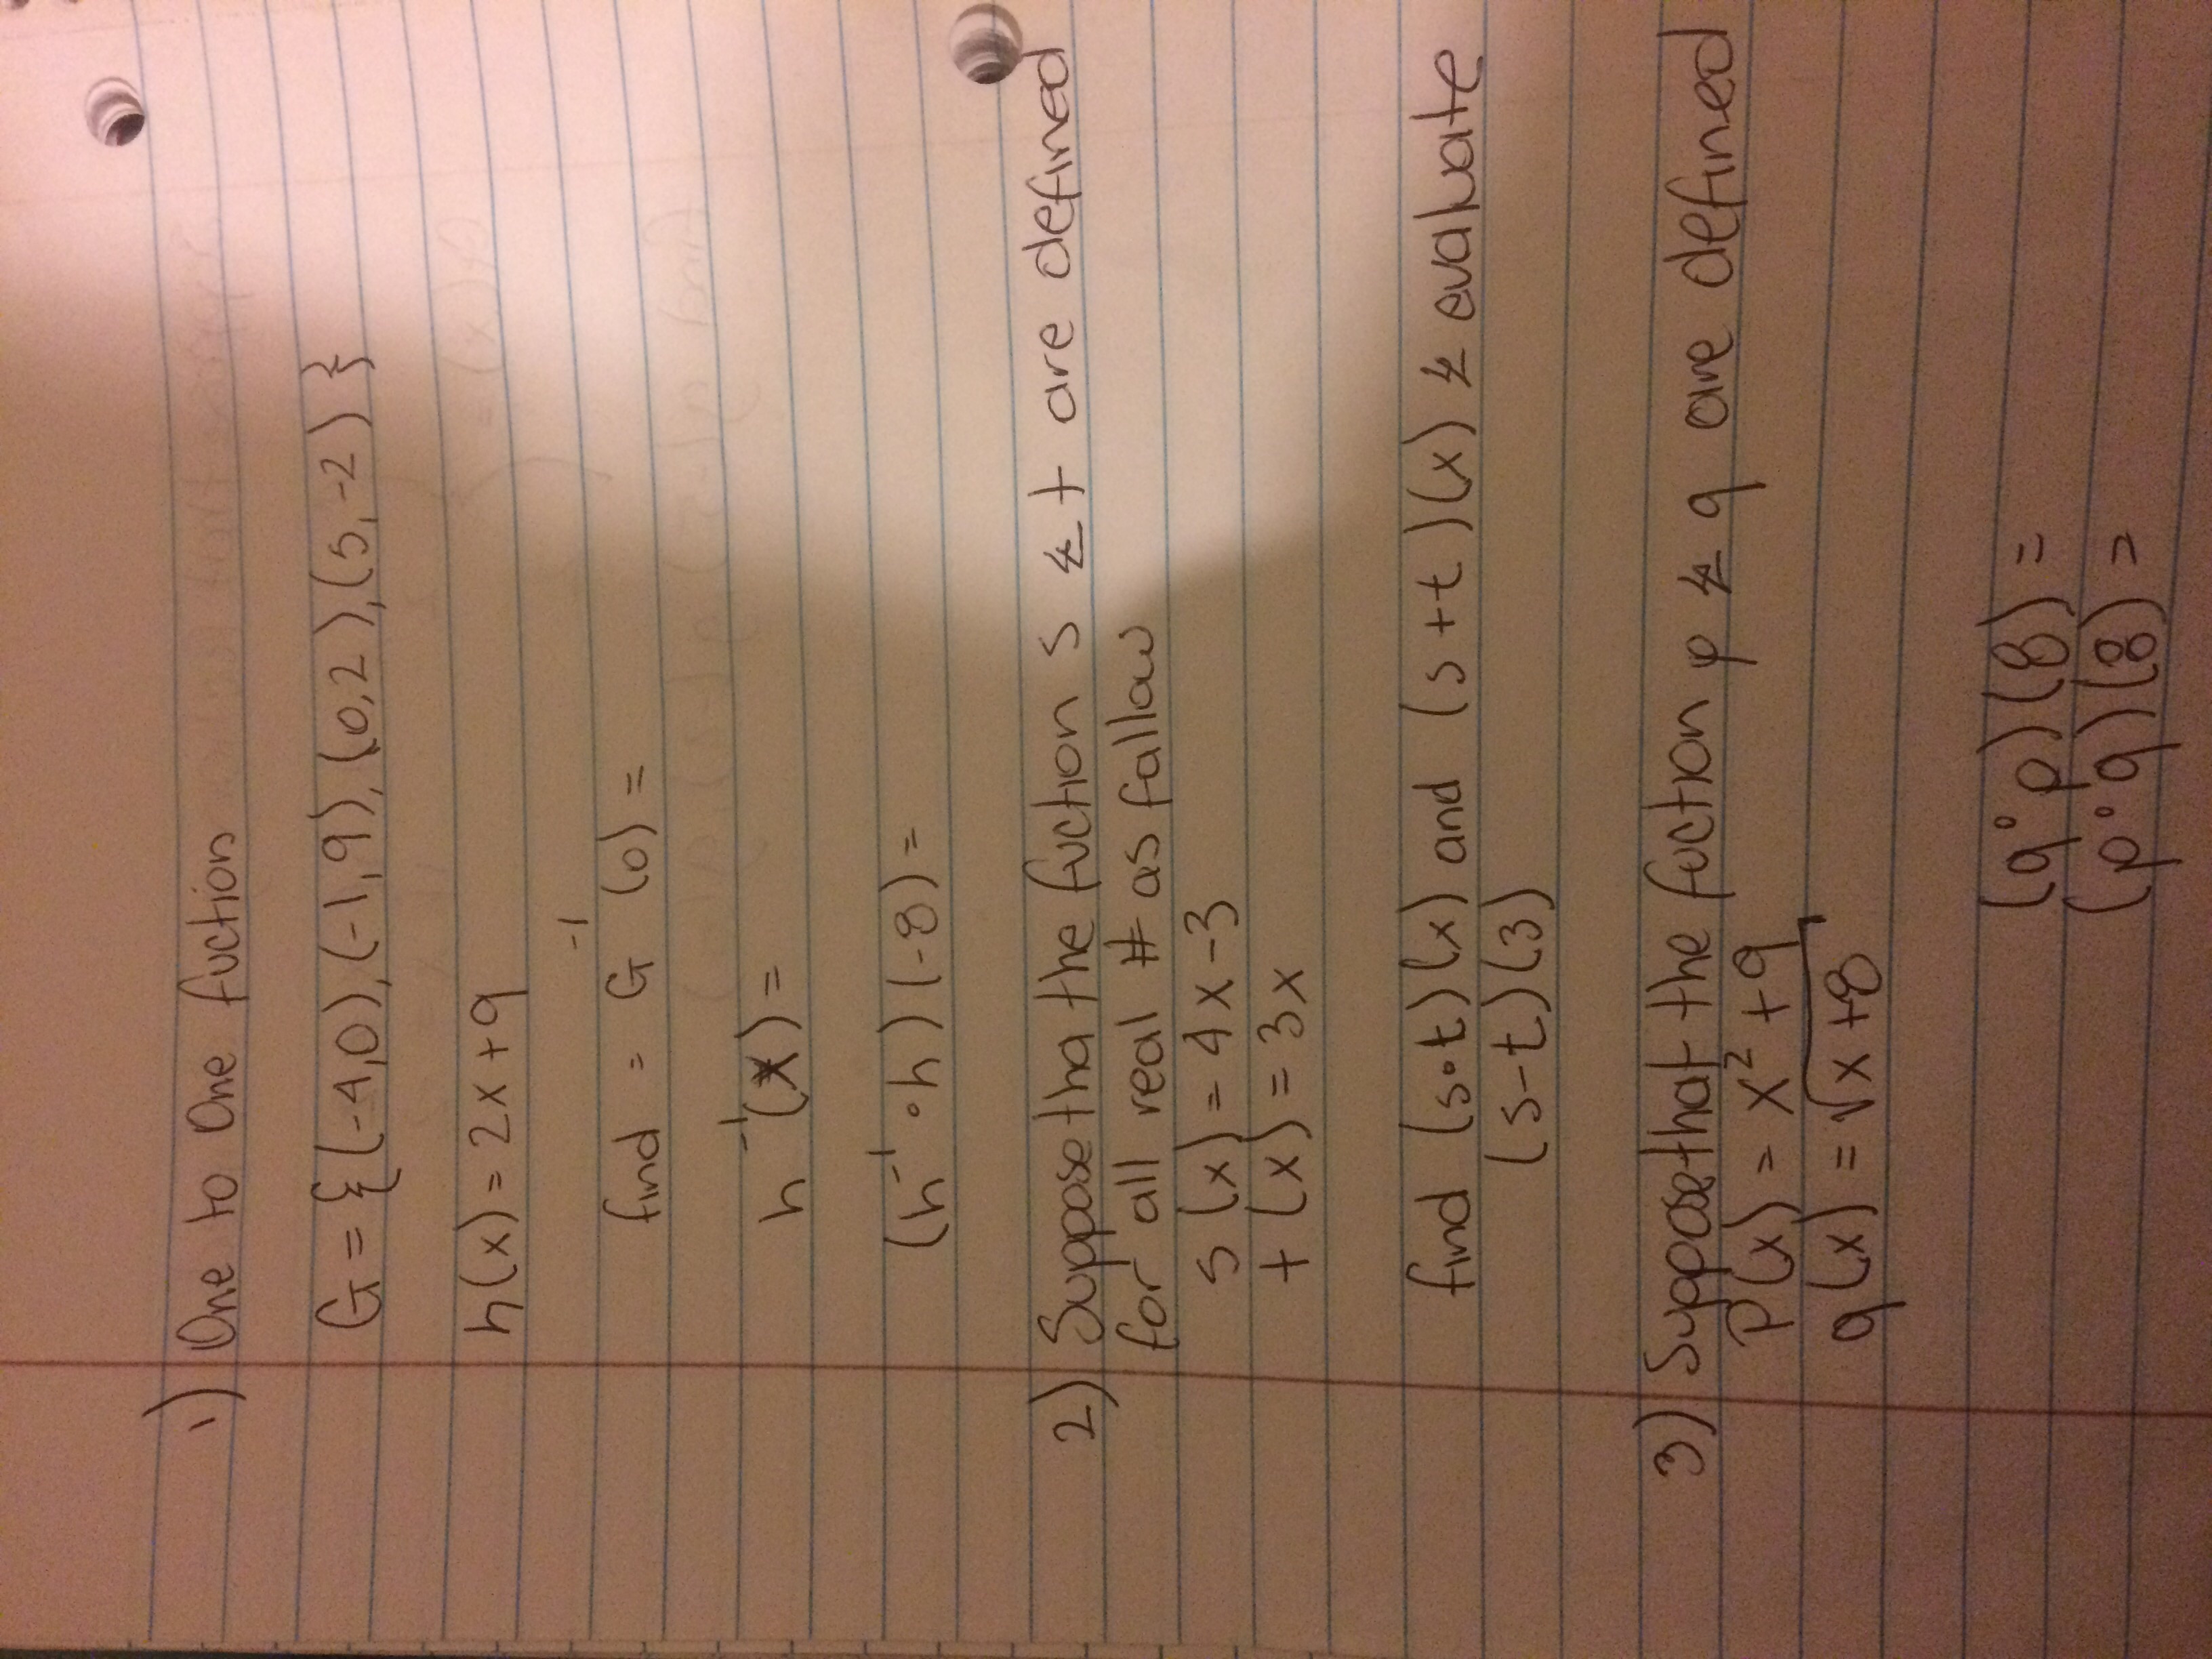 1) One to One fuction
G = {(-4,0),(-1,9),(0,2),(5,-2)}
h(x) = 2x+9
find = G⁻¹(0) =
h⁻¹(x) =
(h⁻¹∘h)(-8) =
2) Suppose tha the fuction s & t are defined
for all real # as fallow
s(x) = 4x-3
t(x) = 3x
find (s•t)(x) and (s+t)(x) & evaluate
(s-t)(3)
3) Suppose that the fuction p & q are defined
P(x) = x²+9
q(x) = √x+8
(q∘p)(8) =
(p∘q)(8) =